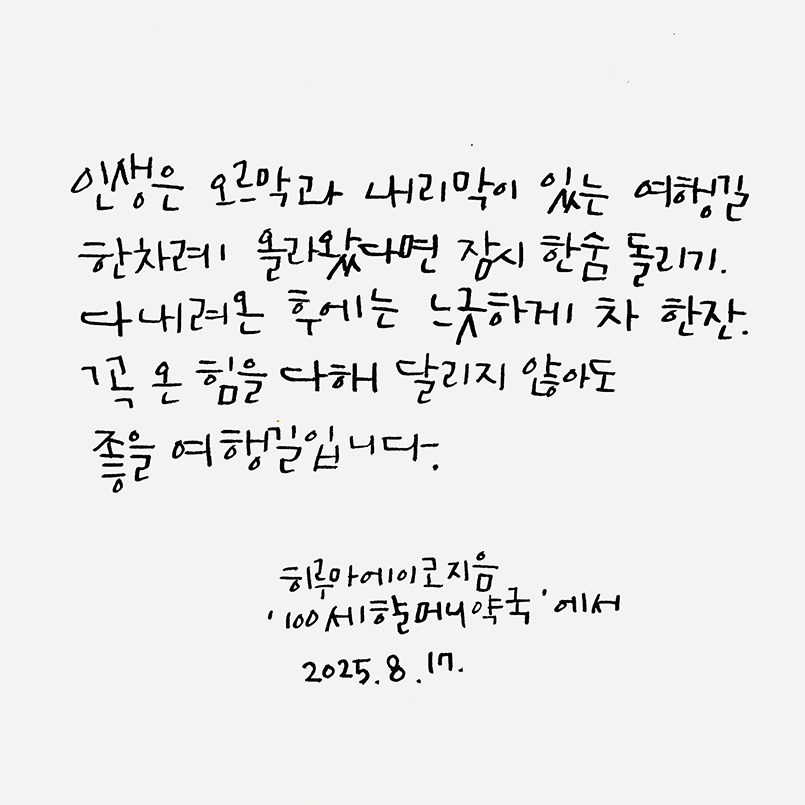 인생은 오르막과 내리막이 있는 여행길
한차례 올라왔다면 잠시 한숨 돌리기.
다 내려온 후에는 느긋하게 차 한잔.
꼭 온 힘을 다해 달리지 않아도
좋을 여행길입니다.
히루마에이코지음
'100세할머니약국'에서
2025.8.17.